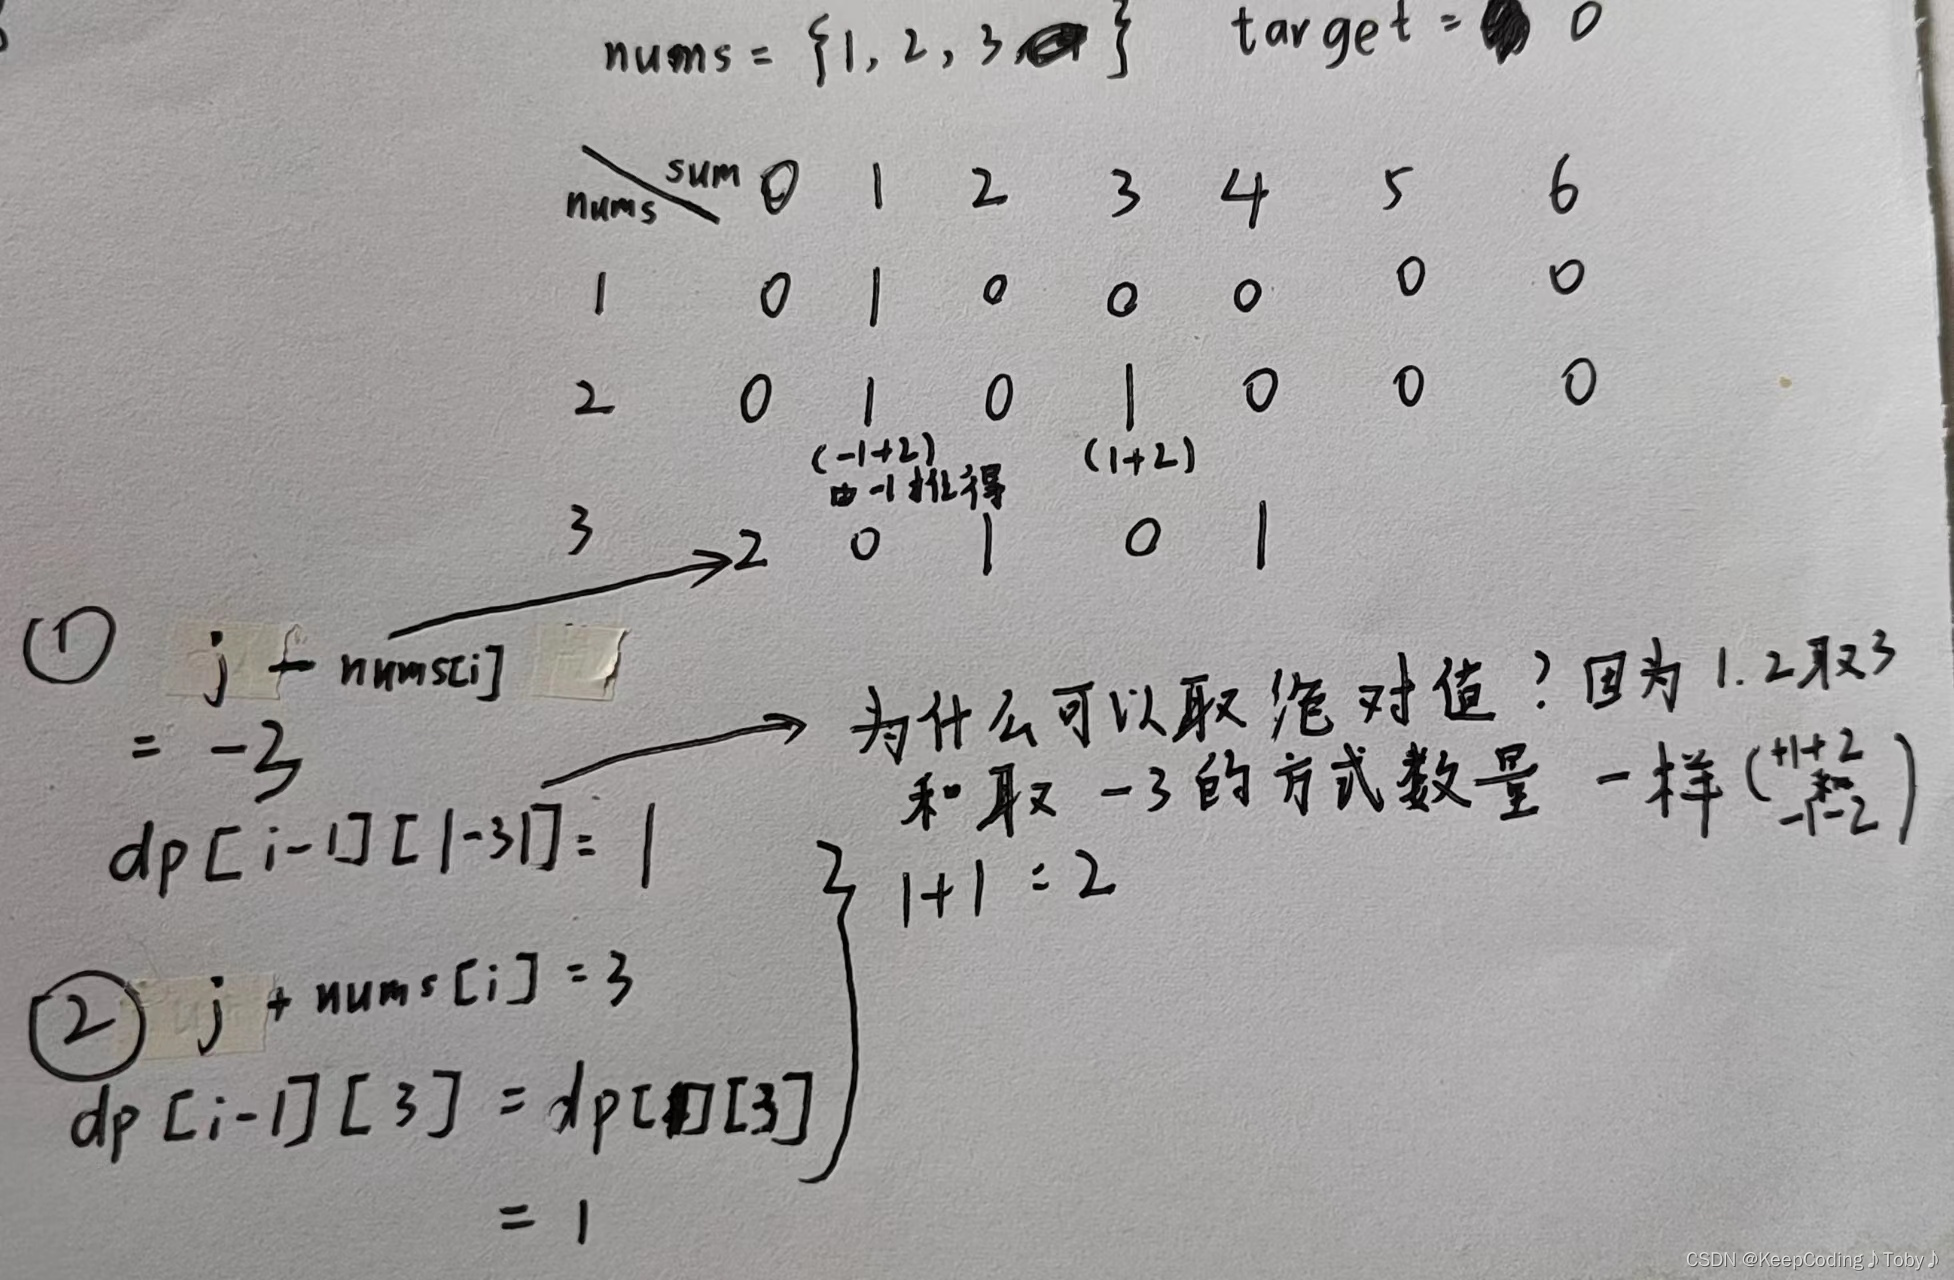 nums = {1, 2, 3} target = 0
sum 0 1 2 3 4 5 6
nums
1 0 1 0 0 0 0 0
2 0 1 0 1 0 0 0
(-1+2) (1+2)
由-1推得
3 2 0 1 0 1
① j - nums[i]
= -3
dp[i-1][|-3|] = 1
为什么可以取绝对值?因为1.2取3
和取-3的方式数量一样(+1+2
和
-1-2)
1+1=2
② j + nums[i] = 3
dp[i-1][3] = dp[1][3]
= 1
CSDN @KeepCoding♪Toby♪